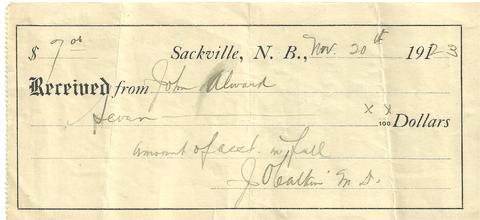 $ 7 00 Sackville, N. B., Nov. 20th 191 3
Received from John Alward
Seven x x/100 Dollars
amount of acct. in full
J. O. Calkin M. D.